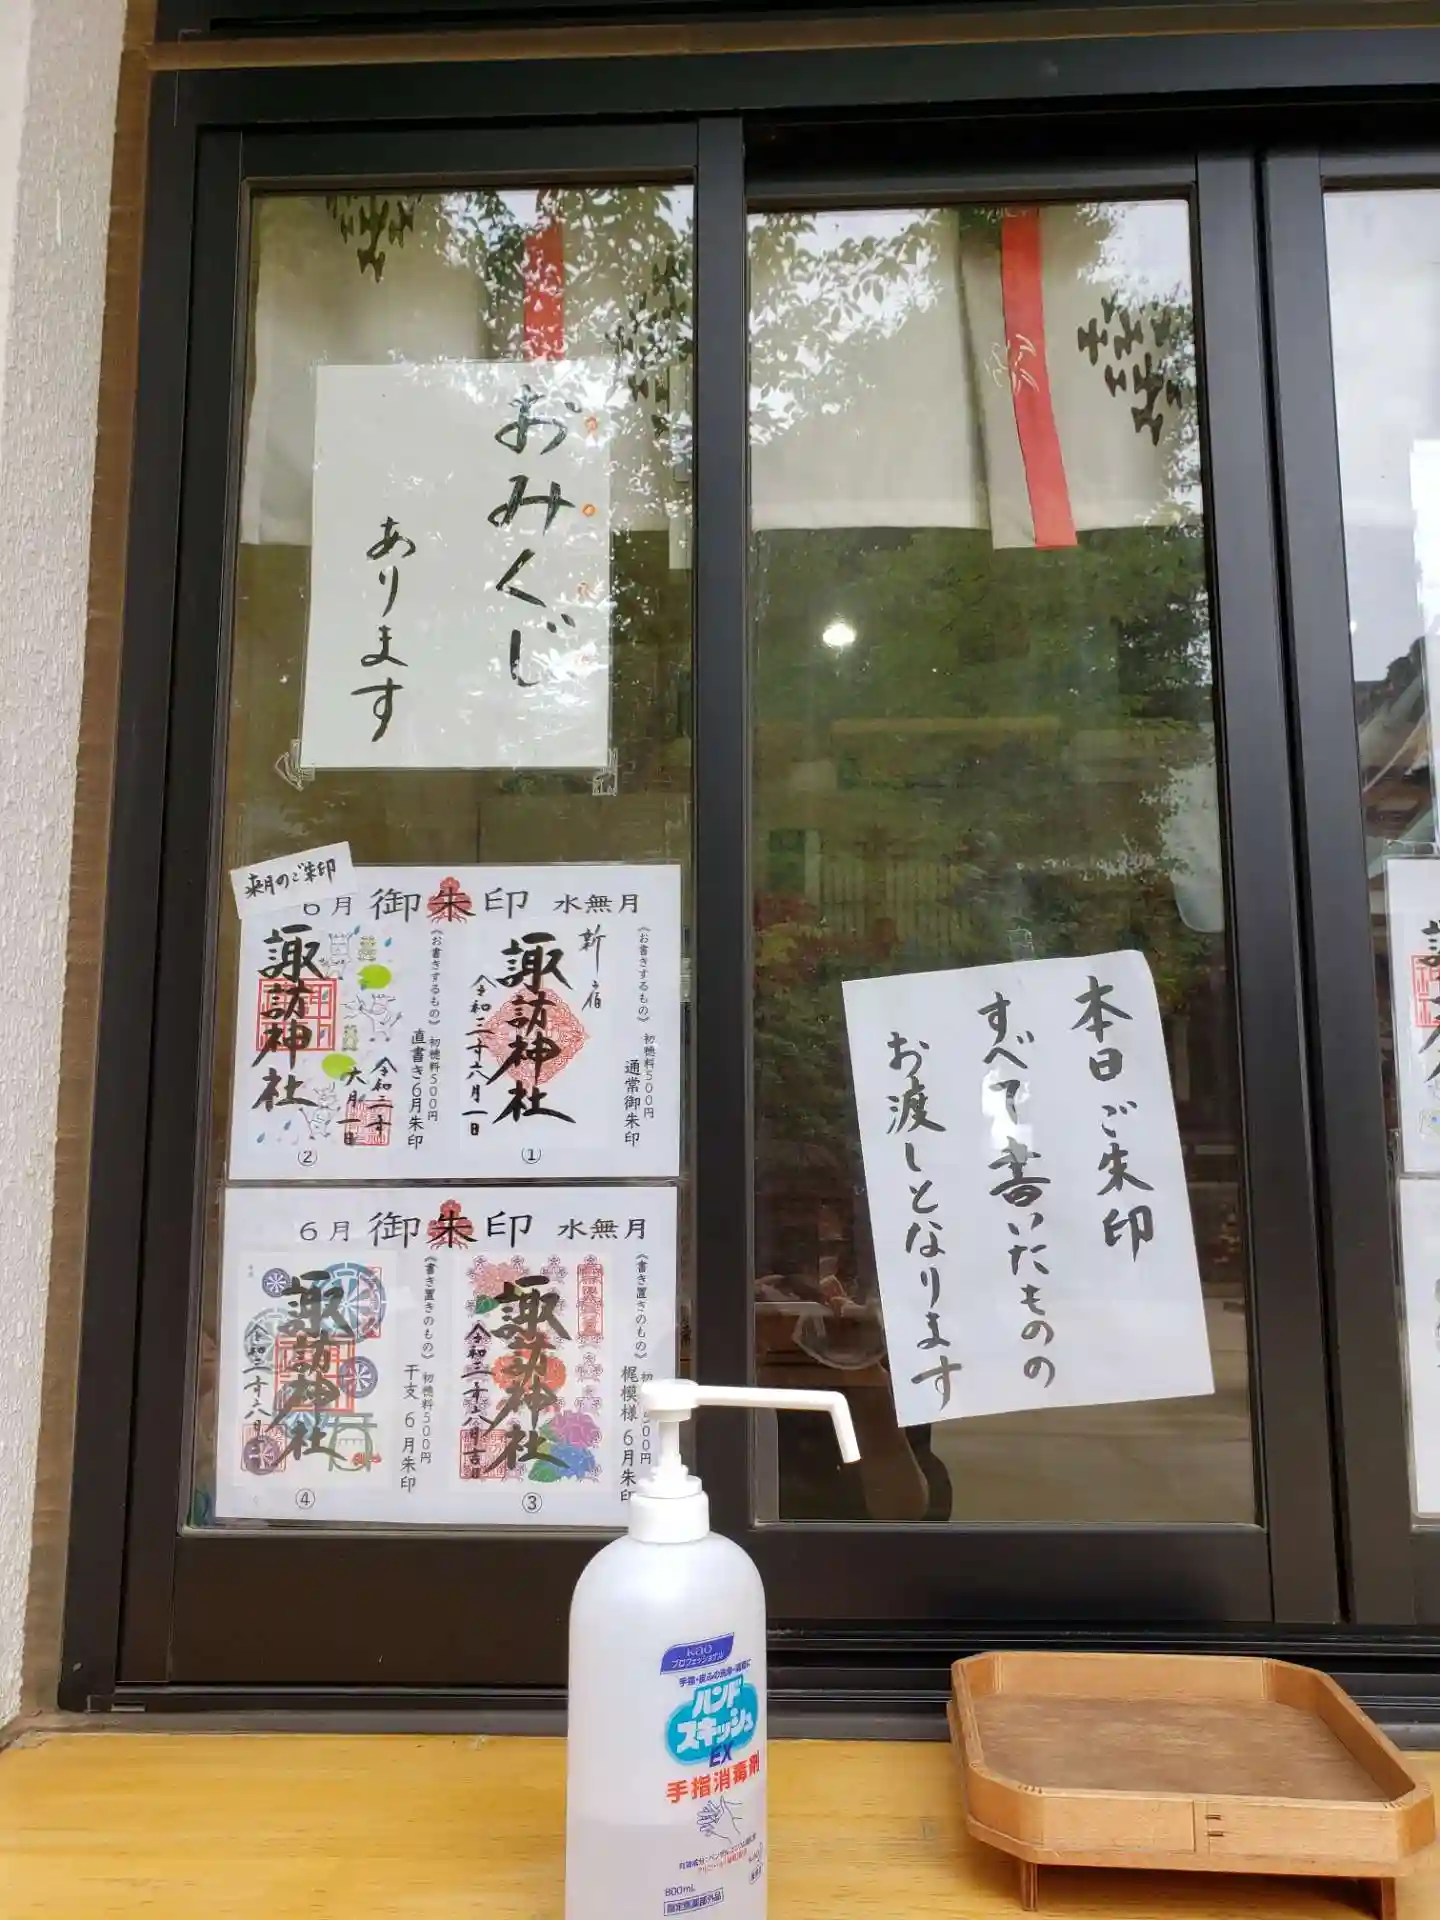 おみくじ
あります
来月のご朱印
6月 御朱印 水無月
《お書きするもの》 初穂料500円
通常御朱印
新宿
諏訪神社
令和三年六月一日
①
《お書きするもの》 初穂料500円
直書き6月朱印
諏訪神社
令和三年
六月一日
②
6月 御朱印 水無月
《書き置きのもの》 初
500円
梶模様 6月朱印
諏訪神社
令和三年六月吉日
③
《書き置きのもの》 初穂料500円
干支 6月朱印
諏訪神社
令和三年六月
④
本日ご朱印
すべて書いたものの
お渡しとなります
Kao
プロフェッショナル
ハンド
スキッシュ
EX
手指消毒剤
800mL
指定医薬部外品